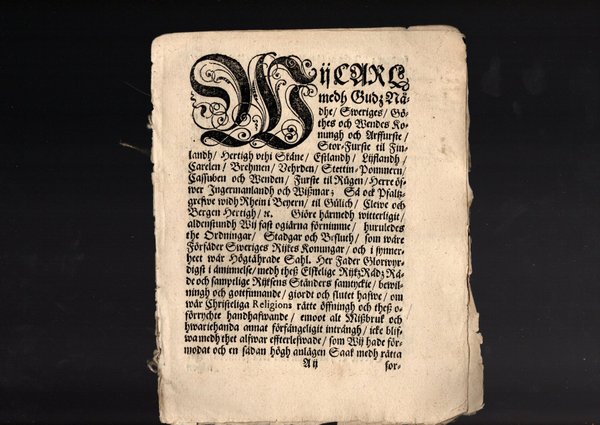 Wij CARL
medh Gudz Nå-
dhe/ Sweriges/ Gö-
thes och Wendes Ko-
nungh och Arffurste/
Stor-Furste til Fin-
landh/ Hertigh vthi Skåne/ Estlandh/ Lijflandh/
Carelen/ Brehmen/ Vehrden/ Stettin-Pommern/
Cassuben och Wenden/ Furste til Rügen/ Herre öf-
wer Ingermanlandh och Wißmar; Så ock Pfaltz-
grefwe widh Rhein i Beyern/ til Gülich/ Clewe och
Bergen Hertigh/ ꝛc. Giöre härmedh witterligit/
aldenstundh Wij fast ogiärna förnimme/ huruledes
the Ordningar/ Stadgar och Besluth/ som wåre
Förfäder Sweriges Rijkes Konungar/ och i synner-
heet wår Högtährade Sahl. Her Fader Glorwyr-
digst i åminnelse/ medh theß Elskelige RijkzRådz Rå-
de och samptlige Rijksens Ständers samtyckie/ bewil-
ningh och gottfinnande/ giordt och slutet hafwe/ om
wår Christeliga Religions rätte öffningh och theß o-
förryckte handhafwande/ emoot alt Mißbruk och
hwariehanda annat förfängeligit inträngh/ icke blif-
wa medh thet alfwar effterlefwade/ som Wij hade för-
modat och en sådan högh anlägen Saak medh rätta
A ij for-